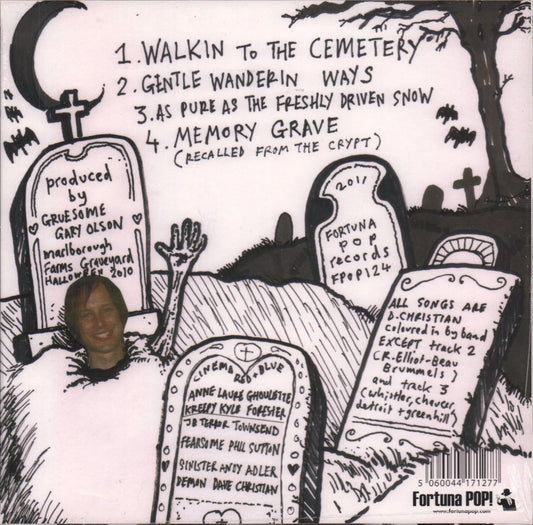 1. WALKIN TO THE CEMETERY
2. GENTLE WANDERIN WAYS
3. AS PURE AS THE FRESHLY DRIVEN SNOW
4. MEMORY GRAVE
(RECALLED FROM THE CRYPT)
produced
by
GRUESOME
GARY OLSON
marlborough
Farms Graveyard
HALLOWEEN 2010
2011
FORTUNA
POP
records
FPOP124
ALL SONGS ARE
D.CHRISTIAN
coloured in by band
EXCEPT track 2
(R.Elliot-Beau
Brummels)
and track 3
(whistler, chever,
detroit + greenhill)
CINEMA
RED + BLUE
ANNE LAURE GHOULETTE
KREEPY KYLE FORESTER
JB TERROR TOWNSEND
FEARSOME PHIL SUTTON
SINISTER ANDY ADLER
DEMON DAVE CHRISTIAN
5 060044 171277
Fortuna POP!
www.fortunapop.com